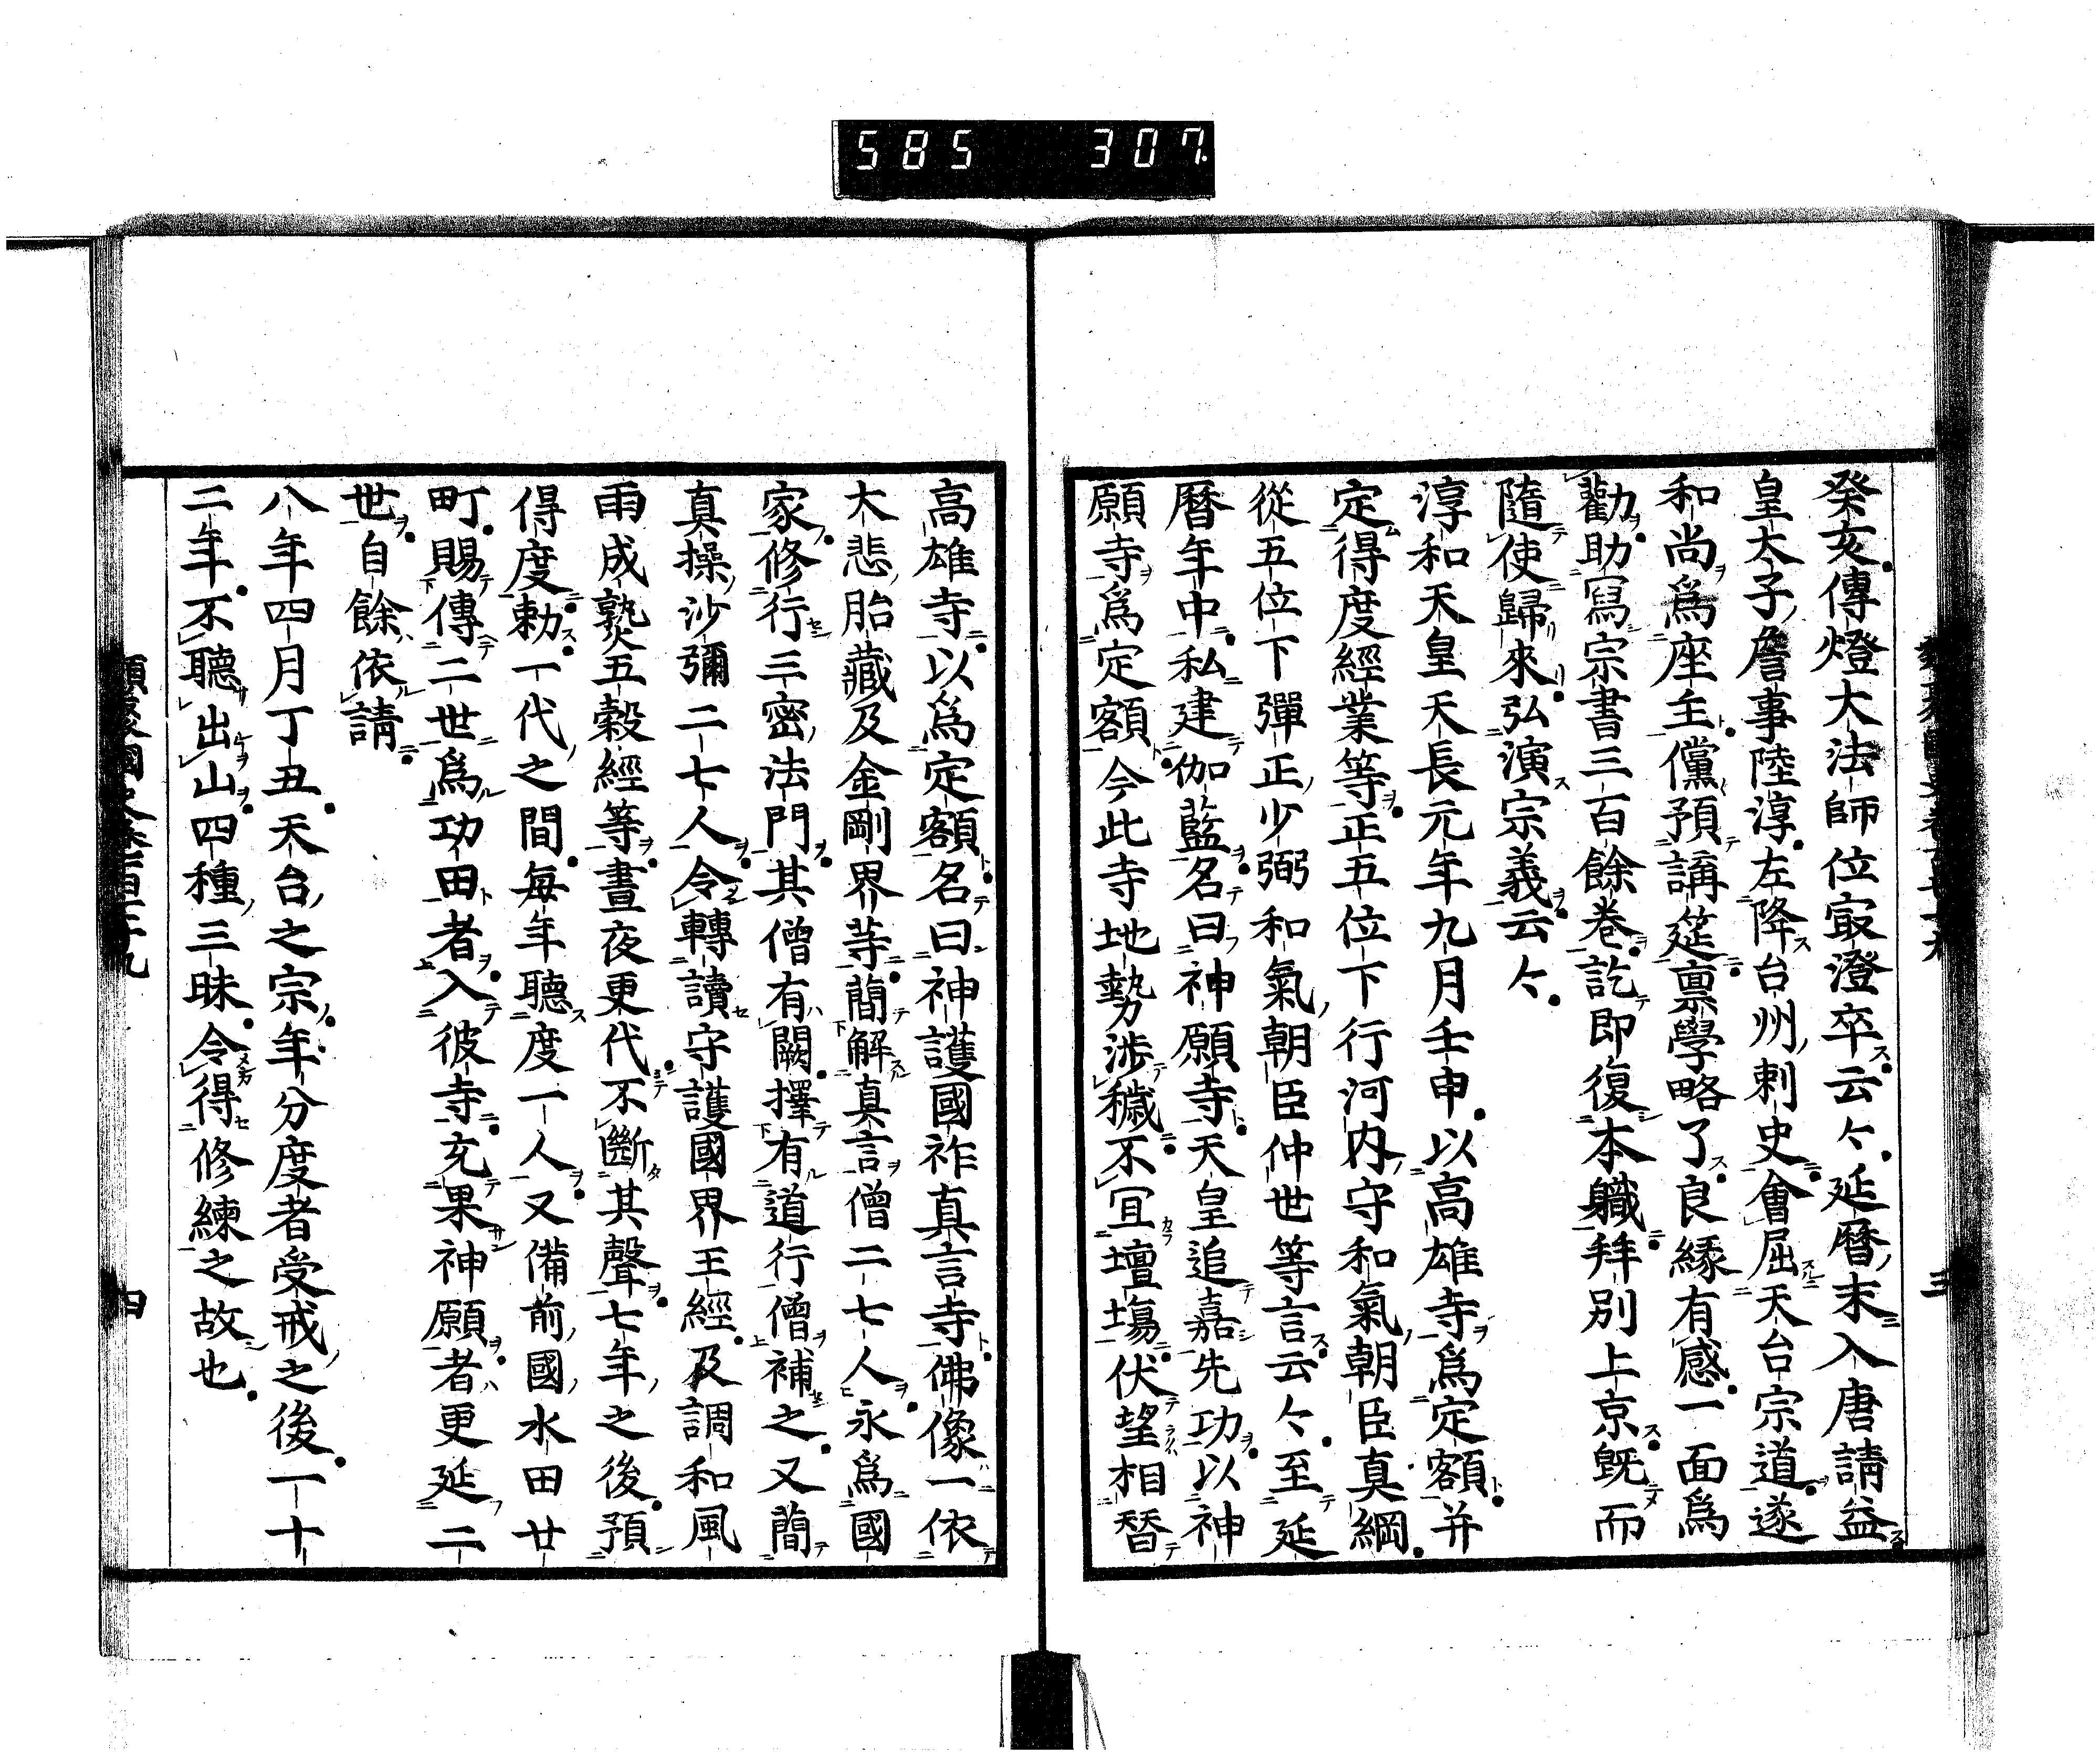 585 307
癸亥傳燈大法師位㝡澄卒云々延曆末入唐請益
皇太子詹事陸淳左降台州刺史會屈天台宗道邃
和尚爲座主儻預講筵禀學略了良緣有感一面爲
勸助寫宗書三百餘卷訖即復本職拜別上京旣而
隨使歸來弘演宗義云々
淳和天皇天長元年九月壬申以高雄寺爲定額并
定得度經業等正五位下行河内守和氣朝臣真綱
從五位下彈正少弼和氣朝臣仲世等言云々至延
曆年中私建伽藍名曰神願寺天皇追嘉先功以神
願寺爲定額今此寺地勢渉穢不宜壇場伏望相替
高雄寺以爲定額名曰神護國祚真言寺佛像一依
大悲胎藏及金剛界等簡解真言僧二七人永爲國
家修行三密法門其僧有闕擇有道行僧補之又簡
真操沙彌二七人令轉讀守護國界王經及調和風
雨成熟五穀經等晝夜更代不斷其聲七年之後預
得度勅一代之間每年聽度一人又備前國水田廿
町賜傳二世爲功田者入彼寺充果神願者更延二
世自餘依請
八年四月丁丑天台之宗年分度者受戒之後一十
二年不聽出山四種三昧令得修練之故也
四